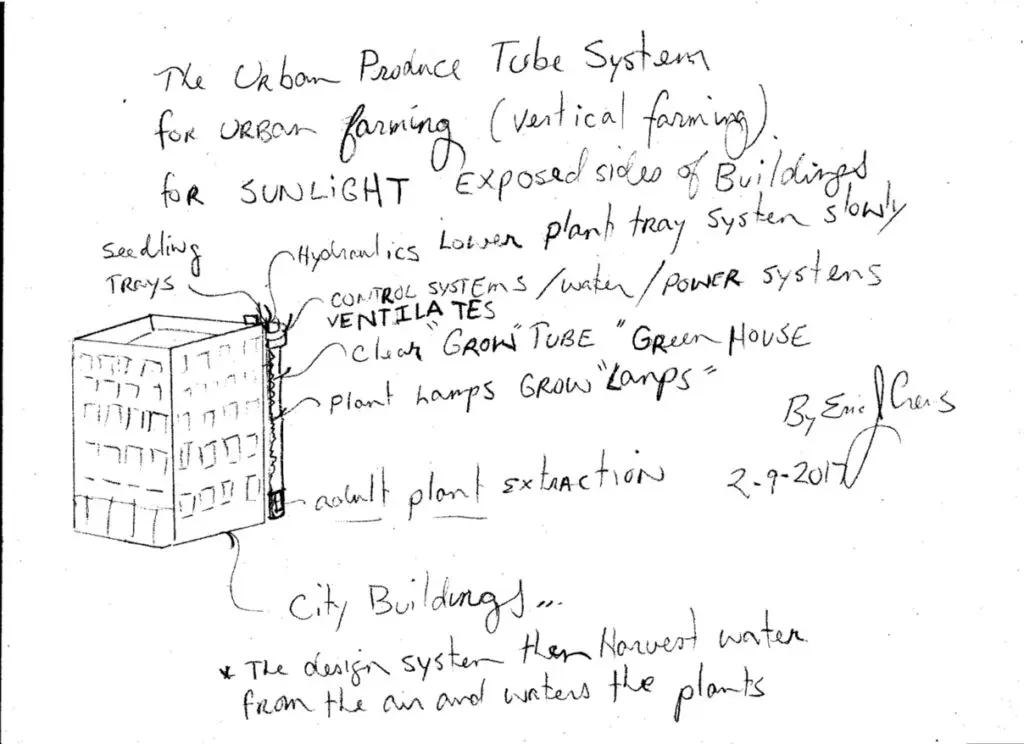 The Urban Produce Tube System
for URBan farming (vertical farming)
for SUNLiGHT Exposed sides of Buildings
Seedling
TRAYS
Hydraulics Lower plant tray system slowly
CONTROL SYSTEMS / water / POWER systems
VENTILATES
Clear "GROW" TUBE "GReen HOUSE
plant Lamps GROW "Lamps"
By Eric J
2-9-2017
adult plant ExtRACTiON
City Buildings...
* The design system then Harvest water
from the air and waters the plants